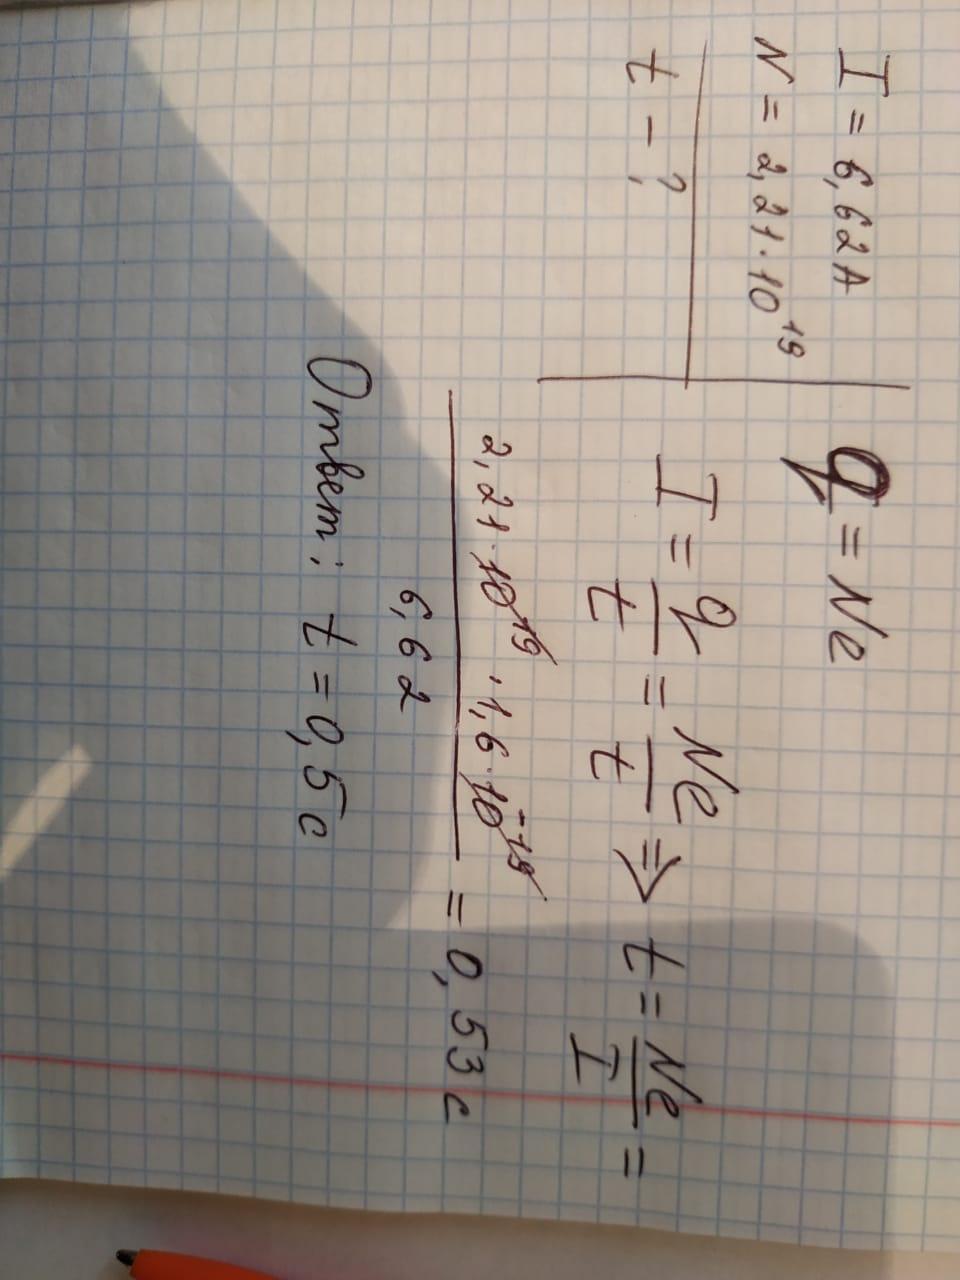 I = 6,62 А
N = 2,21·10¹⁹
t - ?
q = Ne
I = q/t = Ne/t ⇒ t = Ne/I =
2,21·10¹⁹ · 1,6·10⁻¹⁹ / 6,62 = 0,53 с
Ответ: t = 0,5 с